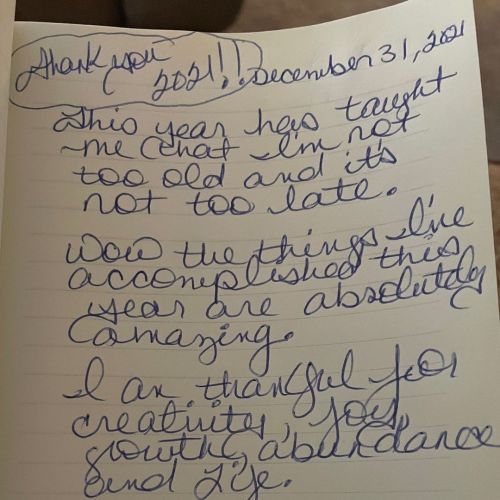 Thank you
2021!! December 31, 2021
This year has taught
me that I'm not
too old and it's
not too late.
Wow the things I've
accomplished this
year are absolutely
amazing.
I am thankful for
creativity, joy,
growth, abundance
and life.